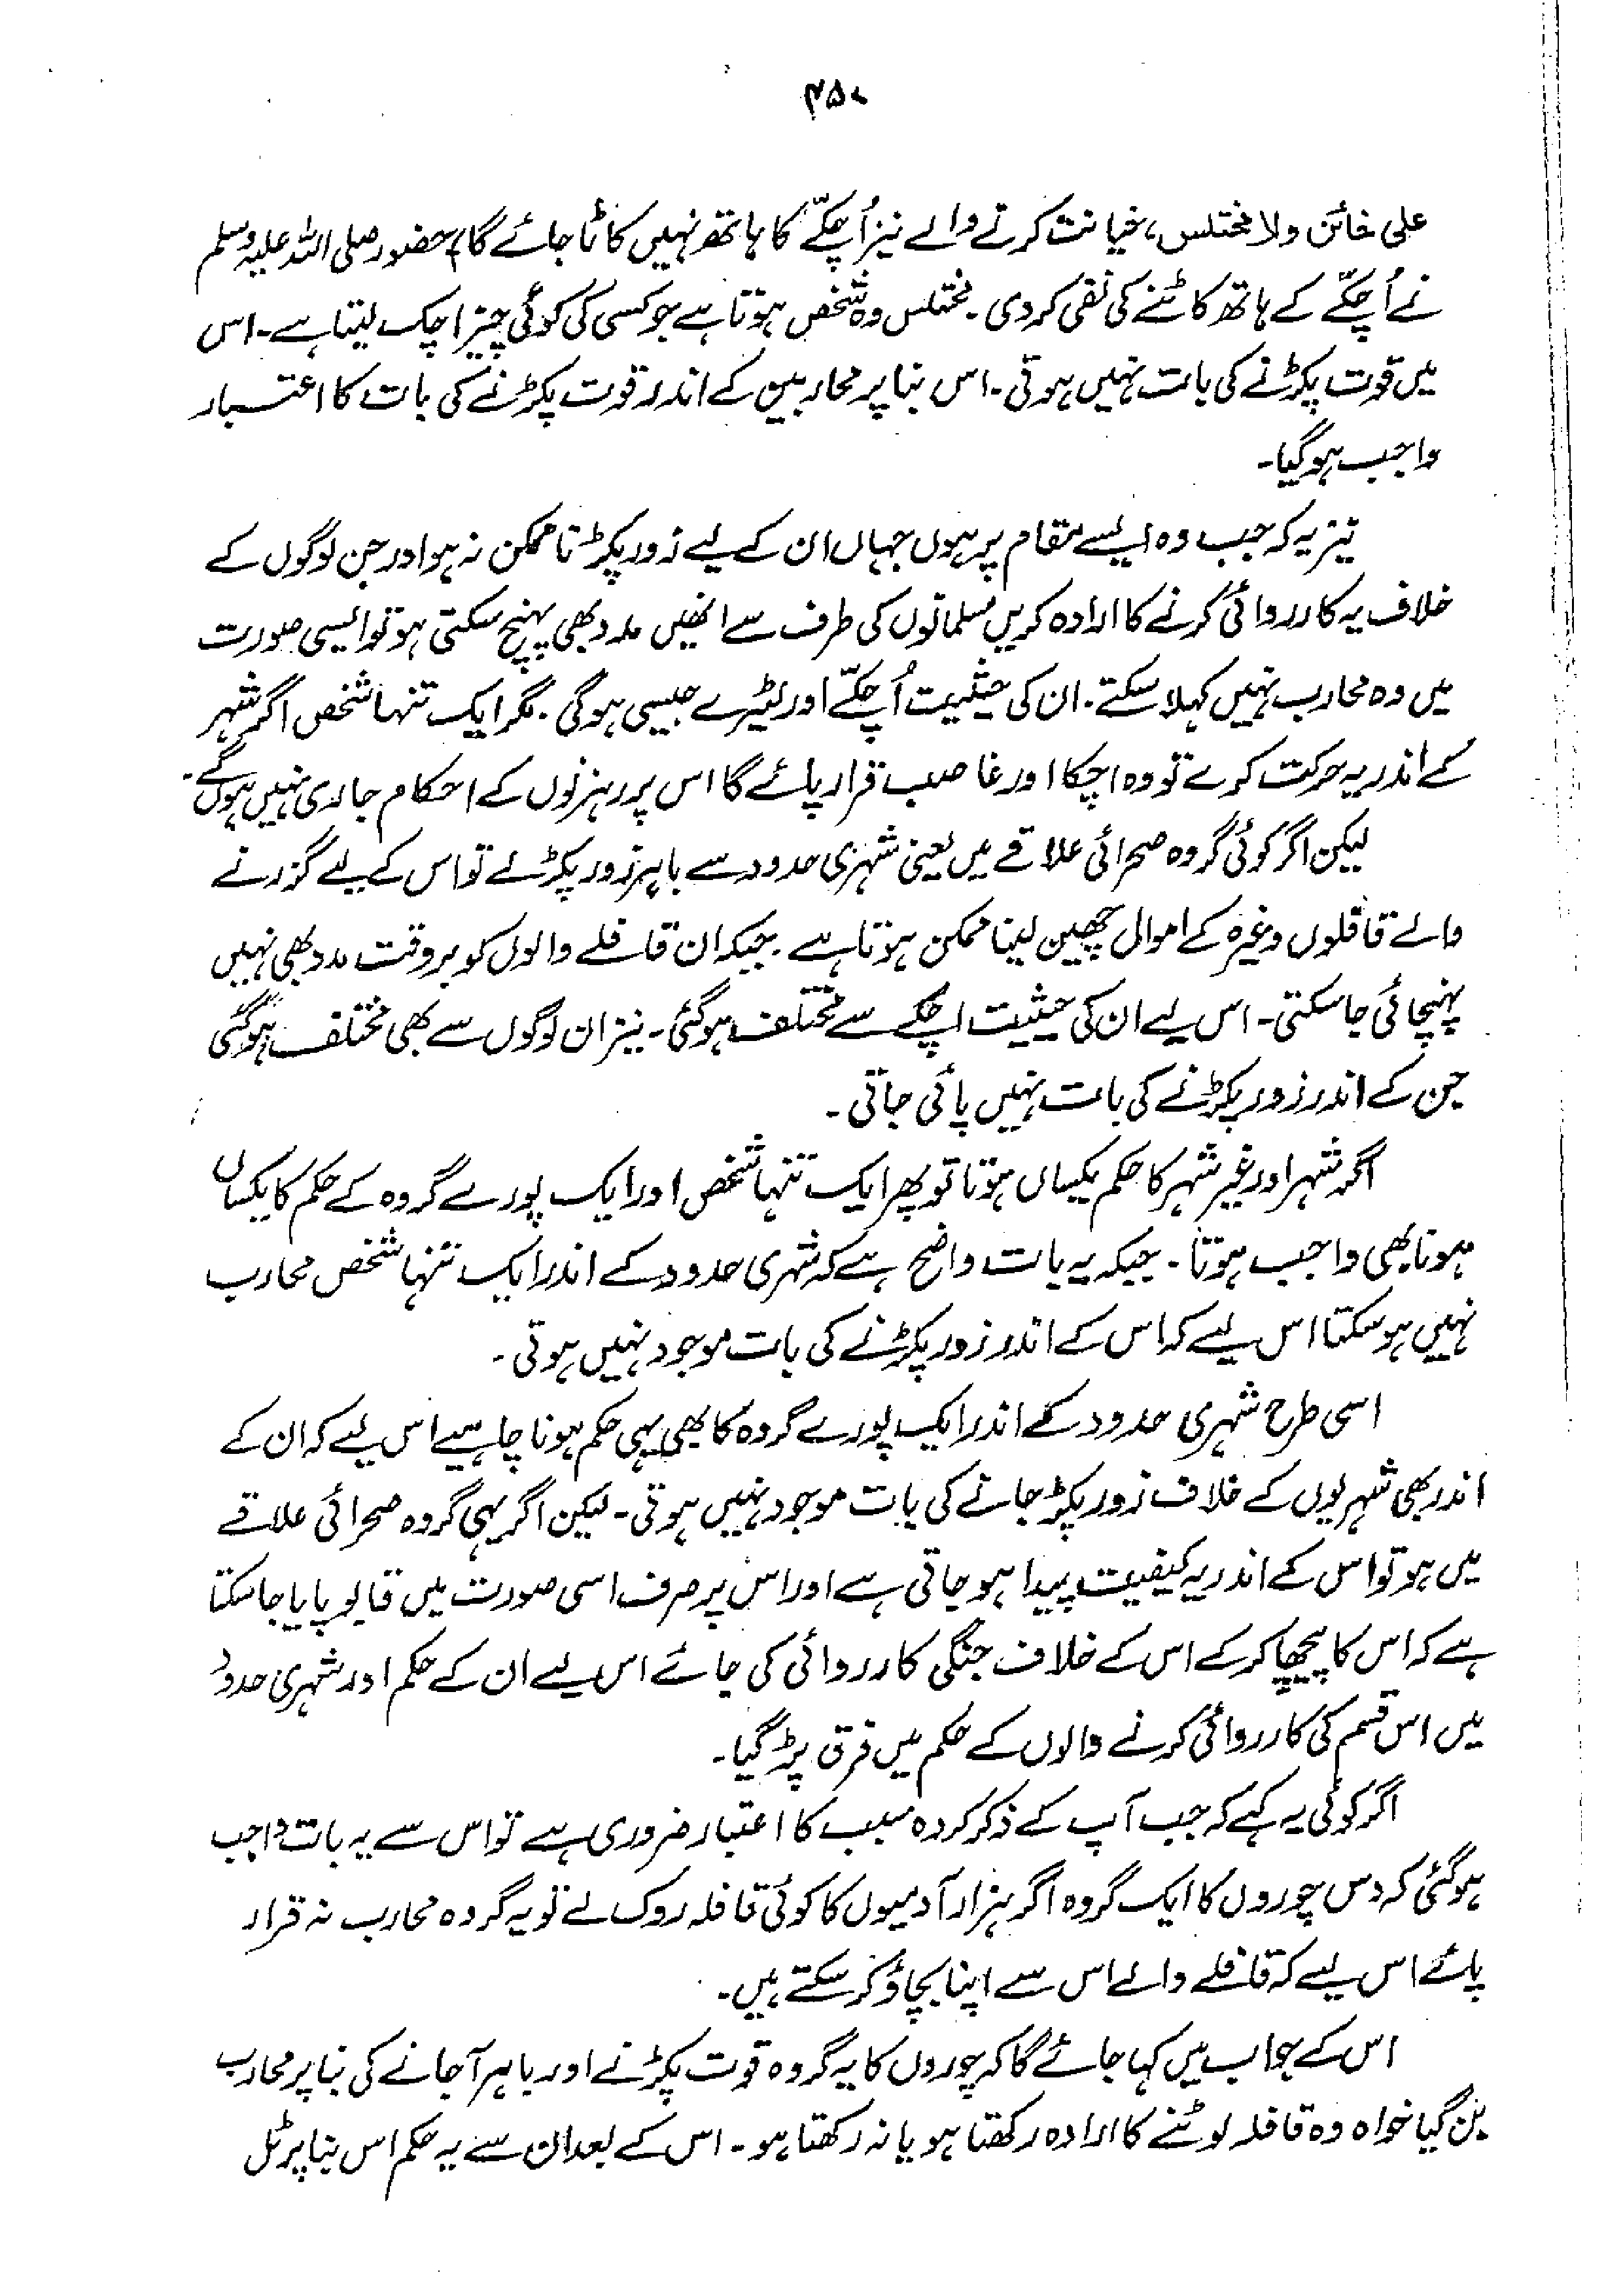 ۴۵۰
علی خائن ولا مختلس، خیانت کرنے والے نیز اُچکّے کا ہاتھ نہیں کاٹا جائے گا) حضور صلی اللہ علیہ وسلم
نے اُچکّے کے ہاتھ کاٹنے کی نفی کر دی۔ مختلس وہ شخص ہوتا ہے جو کسی کی کوئی چیز اچک لیتا ہے۔ اس
میں قوت پکڑنے کی بات نہیں ہوتی۔ اس بنا پر محاربین کے اندر قوت پکڑنے کی بات کا اعتبار
واجب ہو گیا۔
نیز یہ کہ جب وہ ایسے مقام پر ہوں جہاں ان کے لیے زور پکڑنا ممکن نہ ہو اور جن لوگوں کے
خلاف یہ کارروائی کرنے کا ارادہ کریں مسلمانوں کی طرف سے انھیں مدد بھی پہنچ سکتی ہو تو ایسی صورت
میں وہ محارب نہیں کہلا سکتے۔ ان کی حیثیت اُچکّے اور لٹیرے جیسی ہوگی۔ مگر ایک تنہا شخص اگر شہر
کے اندر یہ حرکت کرے تو وہ اچکا اور غاصب قرار پائے گا اس پر رہزنوں کے احکام جاری نہیں ہوں گے۔
لیکن اگر کوئی گروہ صحرائی علاقے میں یعنی شہری حدود سے باہر زور پکڑلے تو اس کے لیے گزرنے
والے قافلوں وغیرہ کے اموال چھین لینا ممکن ہوتا ہے۔ جبکہ ان قافلے والوں کو بروقت مدد بھی نہیں
پہنچائی جا سکتی۔ اس لیے ان کی حیثیت اچکے سے مختلف ہوگئی۔ نیز ان لوگوں سے بھی مختلف ہوگئی
جن کے اندر زور پکڑنے کی بات نہیں پائی جاتی۔
اگر شہر اور غیر شہر کا حکم یکساں ہوتا تو پھر ایک تنہا شخص اور ایک پورے گروہ کے حکم کا یکساں
ہونا بھی واجب ہوتا۔ جبکہ یہ بات واضح ہے کہ شہری حدود کے اندر ایک تنہا شخص محارب
نہیں ہوسکتا اس لیے کہ اس کے اندر زور پکڑنے کی بات موجود نہیں ہوتی۔
اسی طرح شہری حدود کے اندر ایک پورے گروہ کا بھی یہی حکم ہونا چاہیے اس لیے کہ ان کے
اندر بھی شہریوں کے خلاف زور پکڑ جانے کی بات موجود نہیں ہوتی۔ لیکن اگر یہی گروہ صحرائی علاقے
میں ہو تو اس کے اندر یہ کیفیت پیدا ہو جاتی ہے اور اس پر صرف اسی صورت میں قابو پایا جاسکتا
ہے کہ اس کا پیچھا کرکے اس کے خلاف جنگی کارروائی کی جائے اس لیے ان کے حکم اور شہری حدود
میں اس قسم کی کارروائی کرنے والوں کے حکم میں فرق پڑ گیا۔
اگر کوئی یہ کہے کہ جب آپ کے ذکر کردہ سبب کا اعتبار ضروری ہے تو اس سے یہ بات واجب
ہوگئی کہ دس چوروں کا ایک گروہ اگر ہزار آدمیوں کا کوئی قافلہ روک لے تو یہ گروہ محارب نہ قرار
پائے اس لیے کہ قافلے والے اس سے اپنا بچاؤ کر سکتے ہیں۔
اس کے جواب میں کہا جائے گا کہ چوروں کا یہ گروہ قوت پکڑنے اور باہر آجانے کی بنا پر محارب
بن گیا خواہ وہ قافلہ لوٹنے کا ارادہ رکھتا ہو یا نہ رکھتا ہو۔ اس کے بعد ان سے یہ حکم اس بنا پر ٹل